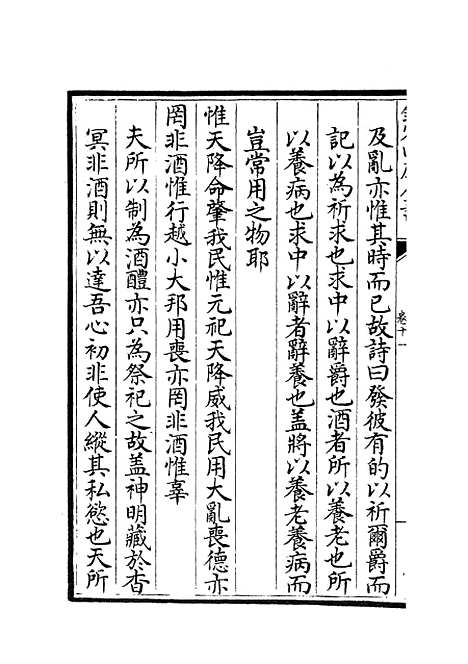 及亂亦惟其時而已故詩曰發彼有的以祈爾爵而
記以為祈求也求中以辭爵也酒者所以養老也所
以養病也求中以辭者辭養也盖將以養老養病而
豈常用之物耶
惟天降命肇我民惟元祀天降威我民用大亂喪德亦
罔非酒惟行越小大邦用喪亦罔非酒惟辜
夫所以制為酒醴亦只為祭祀之故盖神明藏於杳
冥非酒則無以達吾心初非使人縱其私慾也天所
卷十一